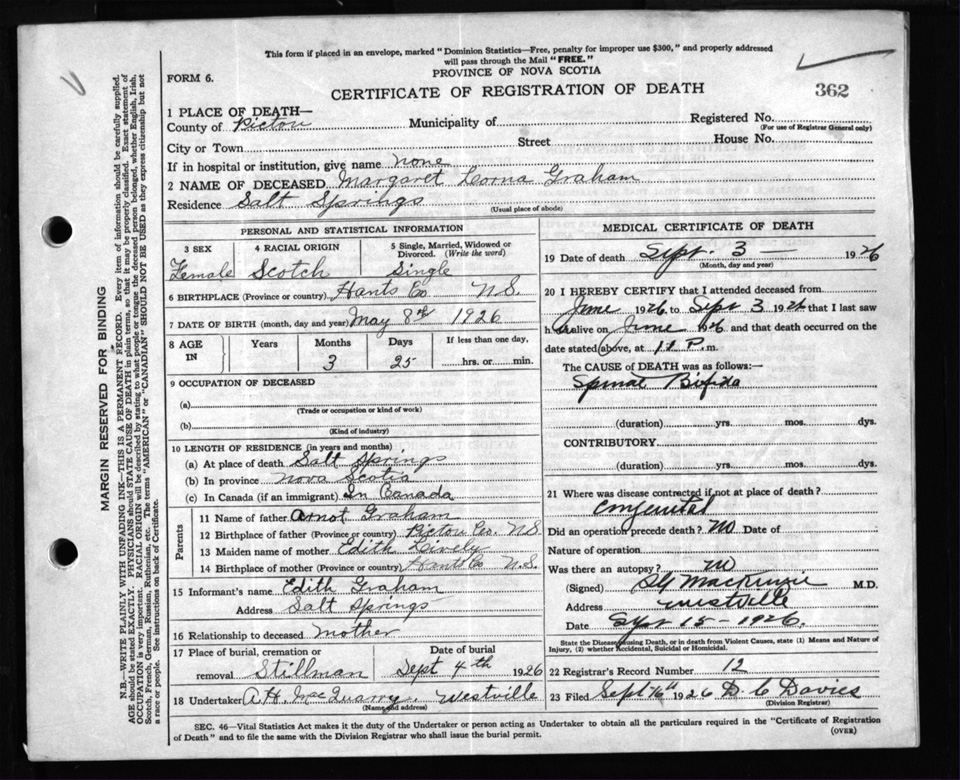 This form if placed in an envelope, marked "Dominion Statistics—Free, penalty for improper use $300," and properly addressed
will pass through the Mail "FREE."
PROVINCE OF NOVA SCOTIA
FORM 6.
CERTIFICATE OF REGISTRATION OF DEATH
362
1 PLACE OF DEATH—
County of Pictou Municipality of Registered No.
(For use of Registrar General only)
City or Town Street House No.
If in hospital or institution, give name none
2 NAME OF DECEASED Margaret Lorna Graham
Residence Salt Springs
(Usual place of abode)
PERSONAL AND STATISTICAL INFORMATION
3 SEX 4 RACIAL ORIGIN 5 Single, Married, Widowed or
Divorced. (Write the word)
Female Scotch Single
6 BIRTHPLACE (Province or country) Hants Co N.S.
7 DATE OF BIRTH (month, day and year) May 8th 1926
8 AGE IN Years Months Days If less than one day,
3 25 hrs. or min.
9 OCCUPATION OF DECEASED
(a)
(Trade or occupation or kind of work)
(b)
(Kind of industry)
10 LENGTH OF RESIDENCE (in years and months)
(a) At place of death Salt Springs
(b) In province Nova Scotia
(c) In Canada (if an immigrant) In Canada
Parents
11 Name of father Arnot Graham
12 Birthplace of father (Province or country) Pictou Co. N.S
13 Maiden name of mother Edith Lively
14 Birthplace of mother (Province or country) Hants Co N.S.
15 Informant's name Edith Graham
Address Salt Springs
16 Relationship to deceased mother
17 Place of burial, cremation or Date of burial
removal Stillman Sept 4th 1926
18 Undertaker A.H. McQuarry. Westville
(Name and address)
MEDICAL CERTIFICATE OF DEATH
19 Date of death Sept. 3 1926
(Month, day and year)
20 I HEREBY CERTIFY that I attended deceased from
June 1926 to Sept 3 1926 that I last saw
her alive on June 1926 and that death occurred on the
date stated above, at 11 P. m.
The CAUSE of DEATH was as follows:—
Spinal Bifida
(duration) yrs. mos. dys.
CONTRIBUTORY
(duration) yrs. mos. dys.
21 Where was disease contracted if not at place of death?
Congenital
Did an operation precede death? no Date of
Nature of operation
Was there an autopsy? no
(Signed) MacKenzie M.D.
Address Westville
Date Sept 15 - 1926.
State the Disease causing Death, or in death from Violent Causes, state (1) Means and Nature of
Injury, (2) whether Accidental, Suicidal or Homicidal.
22 Registrar's Record Number 12
23 Filed Sept 16th 1926 D. C Davies
(Division Registrar)
SEC. 46—Vital Statistics Act makes it the duty of the Undertaker or person acting as Undertaker to obtain all the particulars required in the "Certificate of Registration
of Death" and to file the same with the Division Registrar who shall issue the burial permit.
(OVER)
MARGIN RESERVED FOR BINDING
N.B.—WRITE PLAINLY WITH UNFADING INK—THIS IS A PERMANENT RECORD. Every item of information should be carefully supplied.
AGE should be stated EXACTLY. PHYSICIANS should STATE CAUSE OF DEATH in plain terms, so that it may be properly classified. Exact statement of
OCCUPATION is very important. RACIAL ORIGIN will be described by stating to what people or tongue the deceased person belonged, whether English, Irish,
Scotch, French, German, Russian, Ruthenian, etc. The terms "AMERICAN" or "CANADIAN" SHOULD NOT BE USED as they express citizenship but not
a race or people. See instructions on back of Certificate.